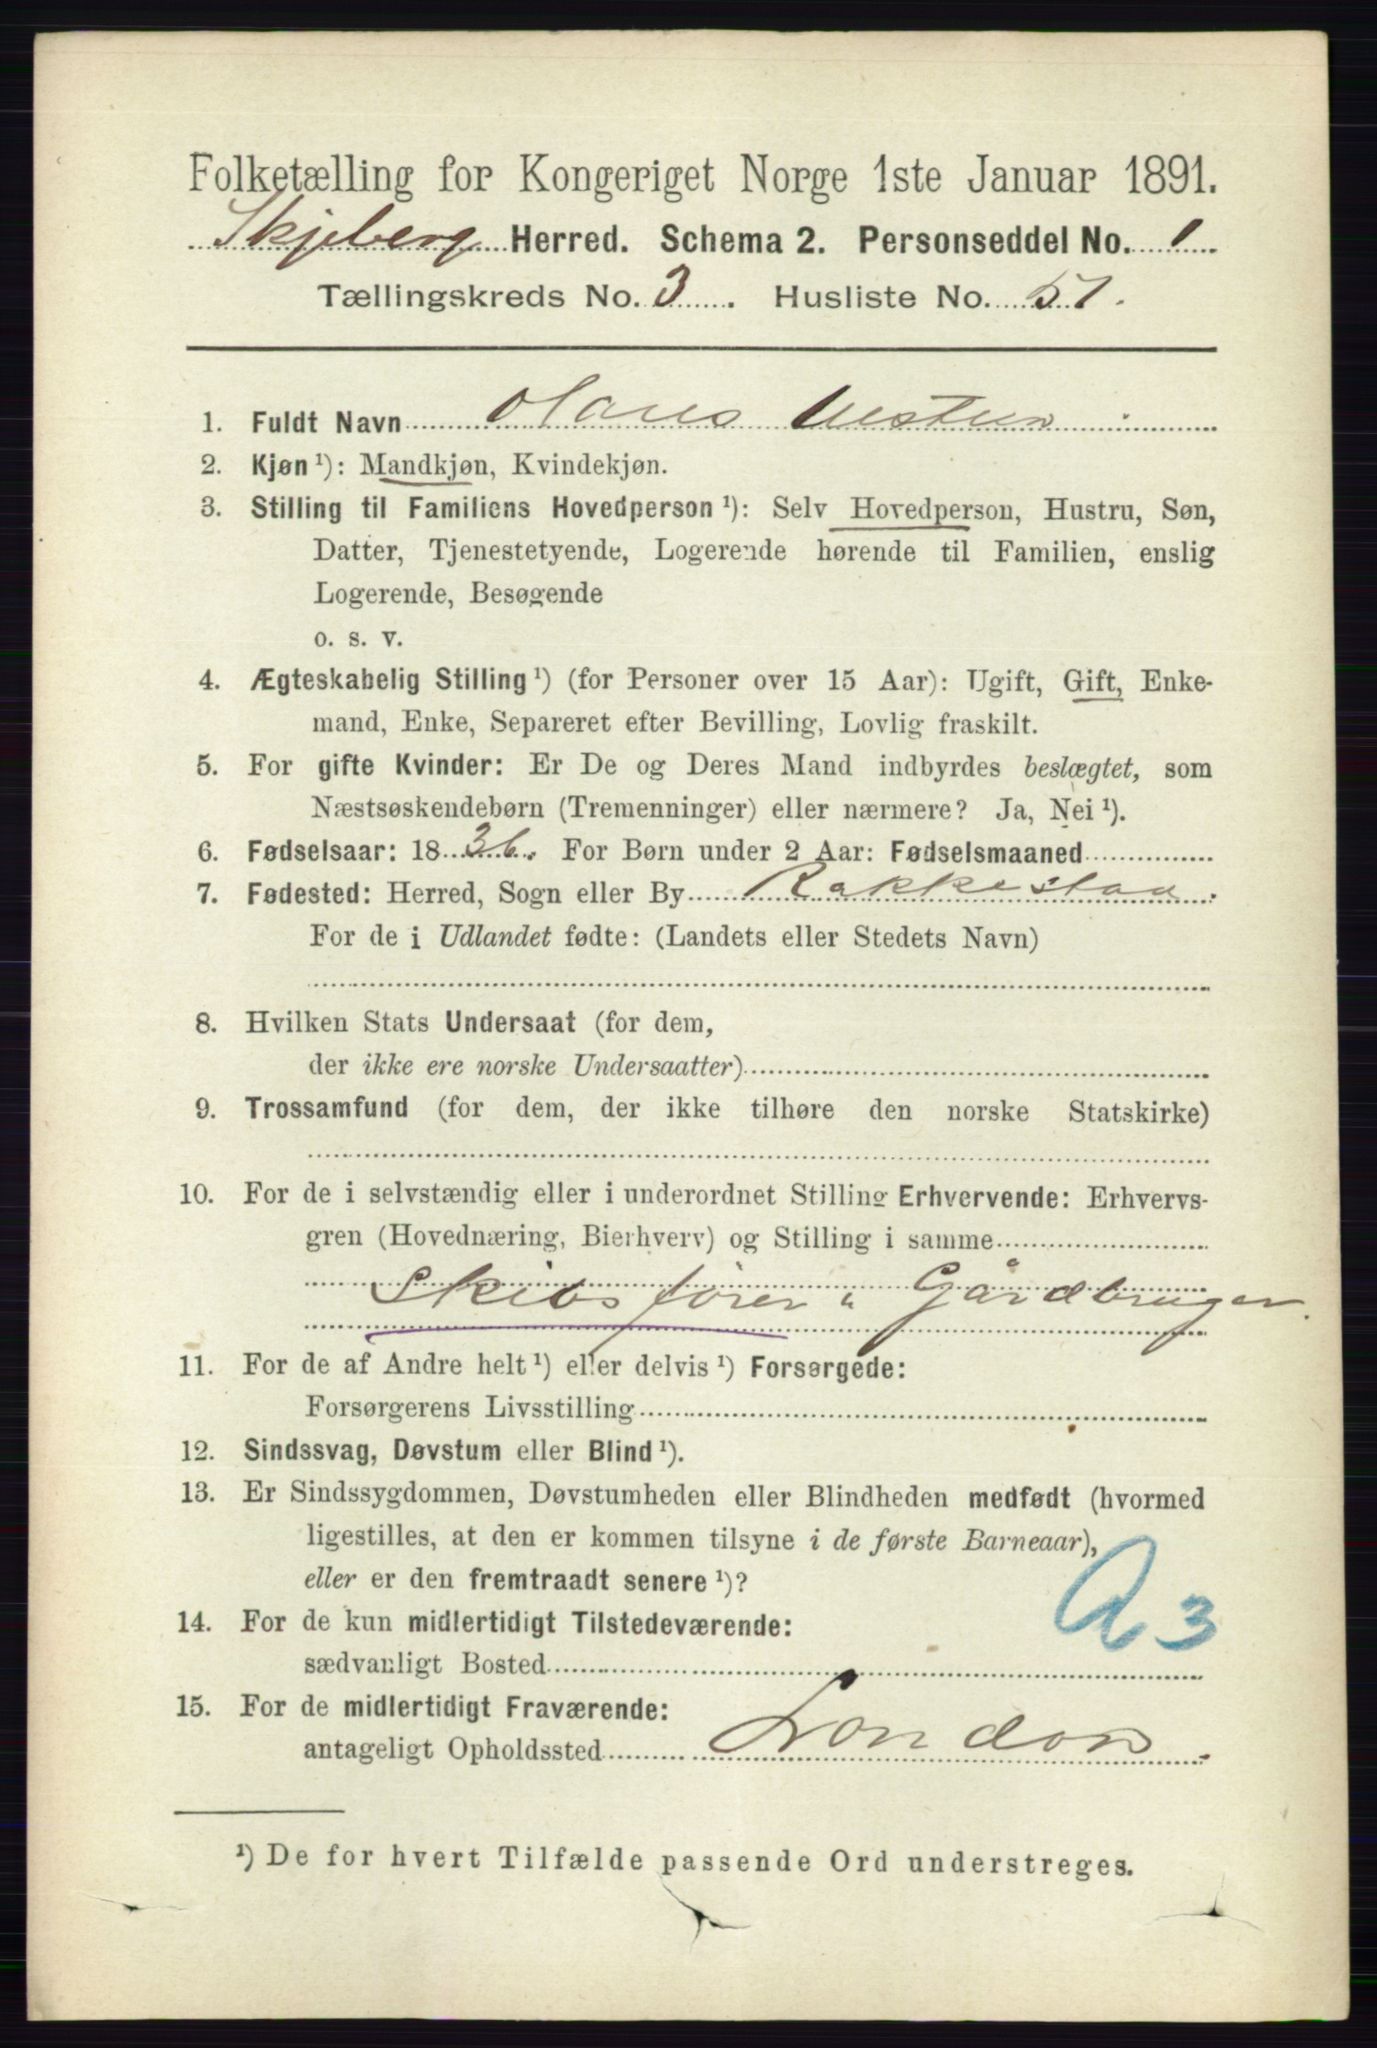 Folketælling for Kongeriget Norge 1ste Januar 1891.
Skjeberg Herred. Schema 2. Personseddel No. 1
Tællingskreds No. 3. Husliste No. 51.
1. Fuldt Navn Olaus
2. Kjøn ¹): Mandkjøn, Kvindekjøn.
3. Stilling til Familiens Hovedperson ¹): Selv Hovedperson, Hustru, Søn,
Datter, Tjenestetyende, Logerende hørende til Familien, enslig
Logerende, Besøgende
o. s. v.
4. Ægteskabelig Stilling ¹) (for Personer over 15 Aar): Ugift, Gift, Enke-
mand, Enke, Separeret efter Bevilling, Lovlig fraskilt.
5. For gifte Kvinder: Er De og Deres Mand indbyrdes beslægtet, som
Næstsøskendebørn (Tremenninger) eller nærmere? Ja, Nei ¹).
6. Fødselsaar: 1836. For Børn under 2 Aar: Fødselsmaaned
7. Fødested: Herred, Sogn eller By Rakkestad.
For de i Udlandet fødte: (Landets eller Stedets Navn)
8. Hvilken Stats Undersaat (for dem,
der ikke ere norske Undersaatter)
9. Trossamfund (for dem, der ikke tilhøre den norske Statskirke)
10. For de i selvstændig eller i underordnet Stilling Erhvervende: Erhvervs-
gren (Hovednæring, Bierhverv) og Stilling i samme
Skibsfører " Gårdbruger.
11. For de af Andre helt ¹) eller delvis ¹) Forsørgede:
Forsørgerens Livsstilling
12. Sindssvag, Døvstum eller Blind ¹).
13. Er Sindssygdommen, Døvstumheden eller Blindheden medfødt (hvormed
ligestilles, at den er kommen tilsyne i de første Barneaar),
eller er den fremtraadt senere ¹)?
A 3
14. For de kun midlertidigt Tilstedeværende:
sædvanligt Bosted
15. For de midlertidigt Fraværende:
antageligt Opholdssted London.
¹) De for hvert Tilfælde passende Ord understreges.